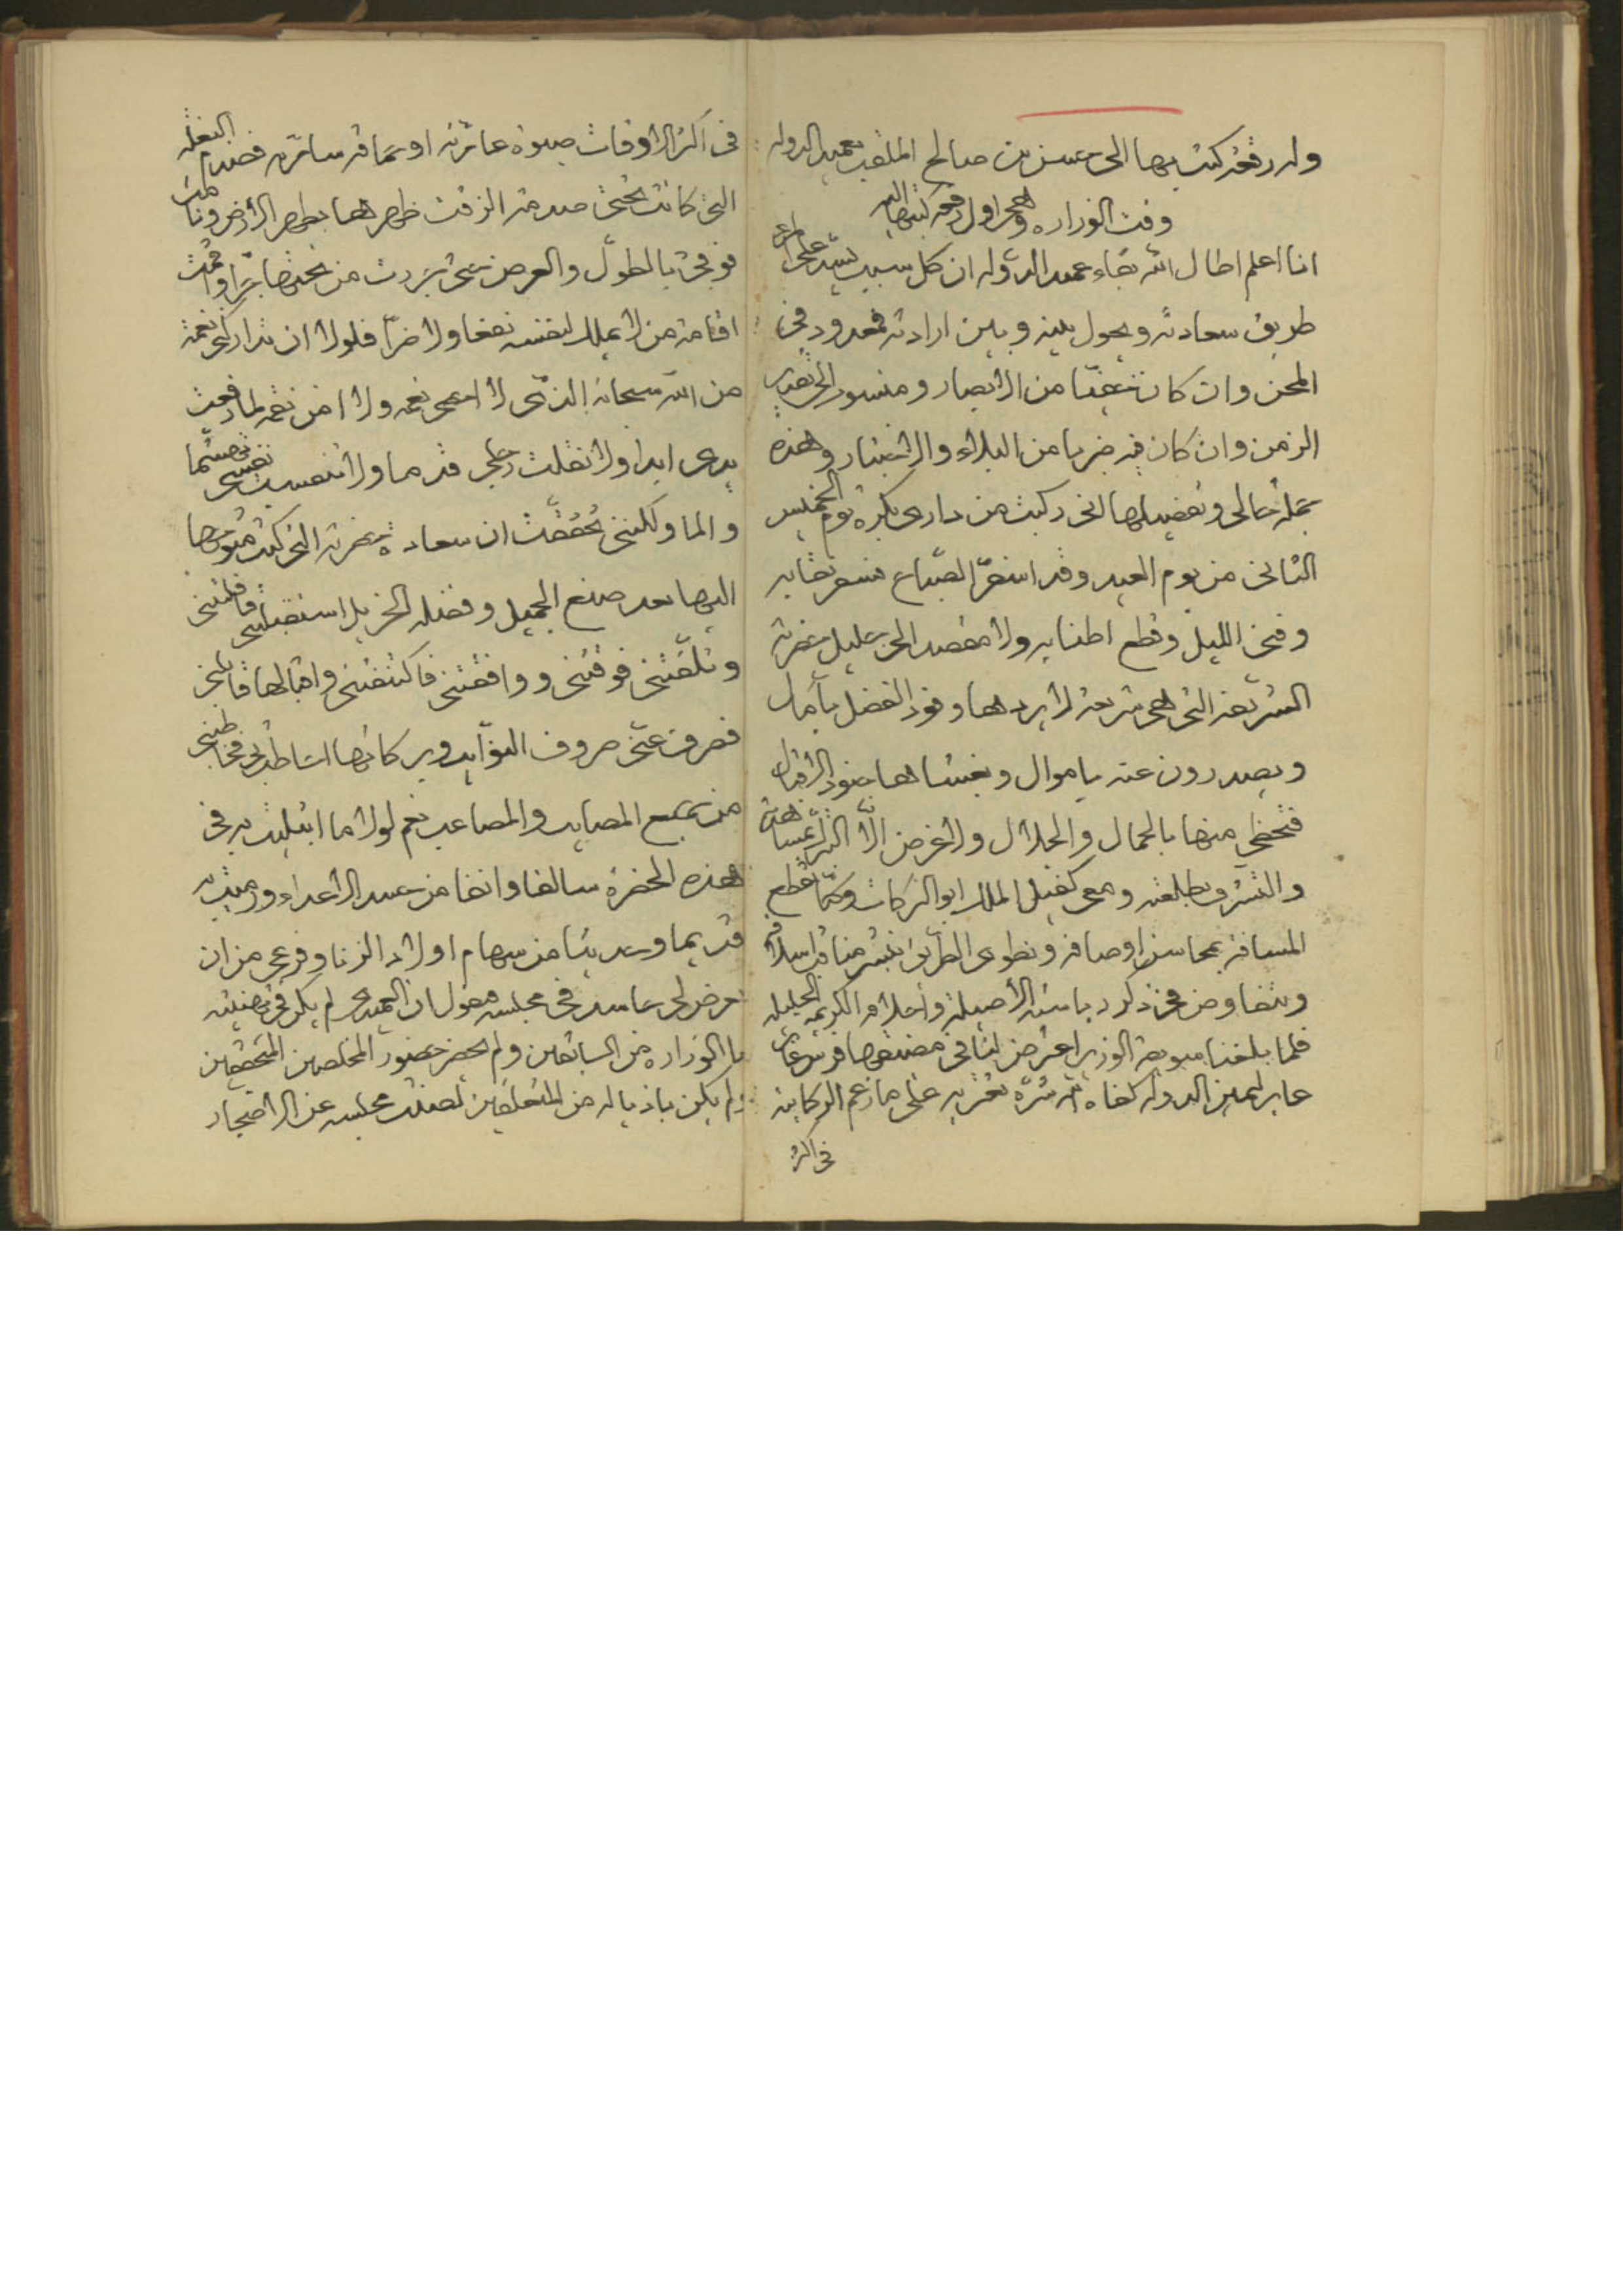 وله رقعة كتب بها الى حسن بن صالح الملقب بعميد الدوله
وقت الوزاره وهى اول رقعة كتبها اليه
انا اعلم اطال الله بقاء عميد الدوله ان كل سبب يسد على
طريق سعادته ويحول بينه وبين ارادته فمعدود فى
المحن وان كان من الابصار ومنسوب الى
الزمن وان كان فيه ضربا من البلاء والاختبار وهذه
جملة حالى وتفصيلها انى ركبت من دارى بكرة يوم الخميس
الثانى من يوم العيد وقد اسفر الصباع نقابه
وفى الليل وقطع اطنابه ولا مقصد الى جليل حضرته
الشريفة التى هى شريعة لا يردها وفود الفضل بآمال
ويصدرون عنه باموال ويغشاها جنود الاقبال
فتحظى منها بالجمال والجلال ولا غرض الا
والتشرف بطلعته ومعى كفيل الملك ابو البركات وكنا نقطع
المسافة بمحاسن اوصافه ونطوى الطريق بنشر مناقب اسلافه
ونتفاوض فى ذكر رياسته الأصيلة واخلاقه الكريمه الجليله
فلما بلغنا سويقة الوزير اعترض لنا فى مضيقها فرس
عابر ليمين الدوله كفاه الله شره تعتريه على ما زعم الركابيه
فى اكثر
فى اكثر الاوقات صبوة عائرته او حماقة سائرته فصدم البغله
التى كانت تحتى صدمة الزقت ظهرها بظهر الأرض ونالت
فوقى بالطول والعرض حتى بررت من تحتها جرا وقمت
اقامة من لا يملك لنفسه نفعا ولا ضرا فلولا ان تداركنى نعمة
من الله سبحانه الذى لا احصى نعمه ولا امن نقمه لما رفعت
يدى ابدا ولا نقلت رجلى قدما ولا تنفست نفسى
والما ولكننى تحققت ان سعادة حضرته التى كنت متوجها
اليها بعد صنع الجميل وفضله الجزيل استقبلتنى فاقلتنى
وتلقتنى فوقتنى ووافقتنى فاكتنفتنى واقبالها قابلنى
فصرف عنى صروف النوائب وبركاتها
من جميع المصايب والمصاعب نعم لولا ما ابتليت به فى
هذه الحضرة سالفا وانفا من حسد الاعداء ورميت به
قديما وحديثا من سهام اولاد الزنا وفزعى من ان
تعرض لى حاسد فى مجلسه بقول ان العميدى لم يكن فى تهنيته
بالوزاره من السابقين ولم يحضر حضور المخلصين المتحققين
ولم يكن باذياله من المتعلقين لصنت مجلسه عن الاضجار